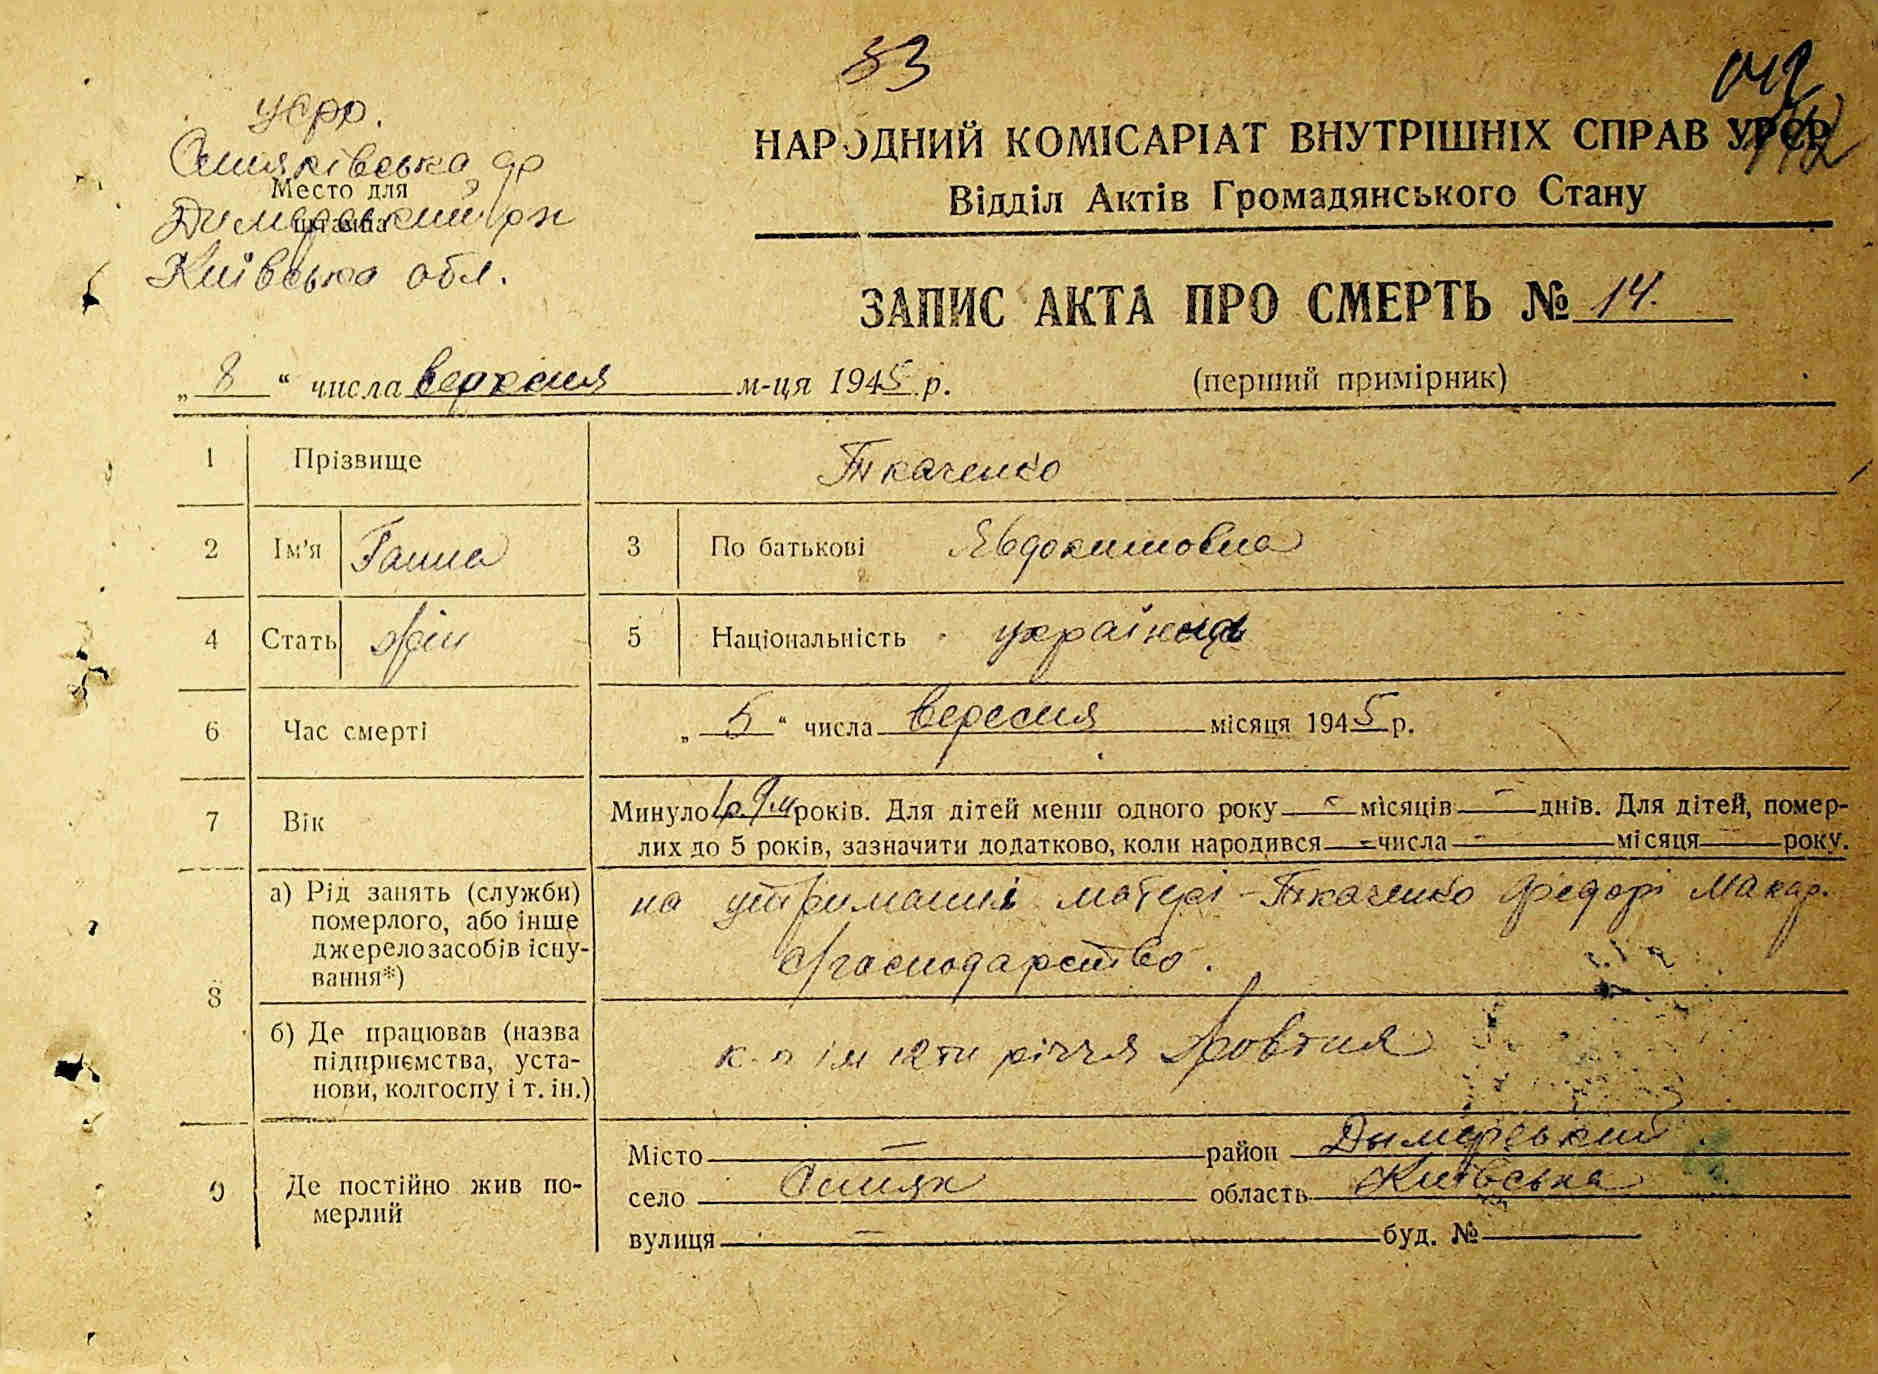 33
УСРР.
Ошляківська с/р
Место для
Димерський р/н
штампа
Київська обл.
НАРОДНИЙ КОМІСАРІАТ ВНУТРІШНІХ СПРАВ УРСР
Відділ Актів Громадянського Стану
ЗАПИС АКТА ПРО СМЕРТЬ № 14.
„ 8 “ числа вересня м-ця 1945 р. (перший примірник)
1 Прізвище Ткаченко
2 Ім'я Ганна 3 По батькові Явдокимовна
4 Стать жін 5 Національність українка
6 Час смерті „ 5 “ числа вересня місяця 1945 р.
7 Вік Минуло 1р. 9м років. Для дітей менш одного року - місяців - днів. Для дітей, помер-
лих до 5 років, зазначити додатково, коли народився - числа - місяця - року.
8 а) Рід занять (службы) померлого, або інше джерело засобів існу-вання*)
на утриманні матері - Ткаченко Федорі Макар.
с/господарство.
б) Де працював (назва підприємства, уста-нови, колгоспу і т. ін.)
к-п ім 12ти річчя Жовтня
9 Де постійно жив по-мерлий
Місто — район Димерський
село область Київська
вулиця — буд. №